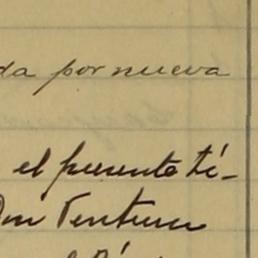 da por nueva
el presente tí-
Don Ventura